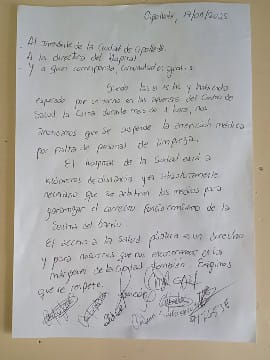 Cipolletti, 17/01/2025
Al Intendente de la Ciudad de Cipolletti.
A la directora del Hospital
Y a quien corresponda, Comunidad en gral. :
Siendo las hs y habiendo
esperado por un turno en las afueras del Centro de
Salud La Costa durante más de 1 hora, nos
anoticiamos que se suspende la atención médica
por falta de personal de limpieza.
El hospital de la Ciudad está a
kilómetros de distancia y es absolutamente
necesario que se arbitren los medios para
garantizar el correcto funcionamiento de la
salita del barrio.
El acceso a la Salud pública es un derecho
y para nosotros que nos encontramos en los
márgenes de la Ciudad también. Exigimos
que se respete.